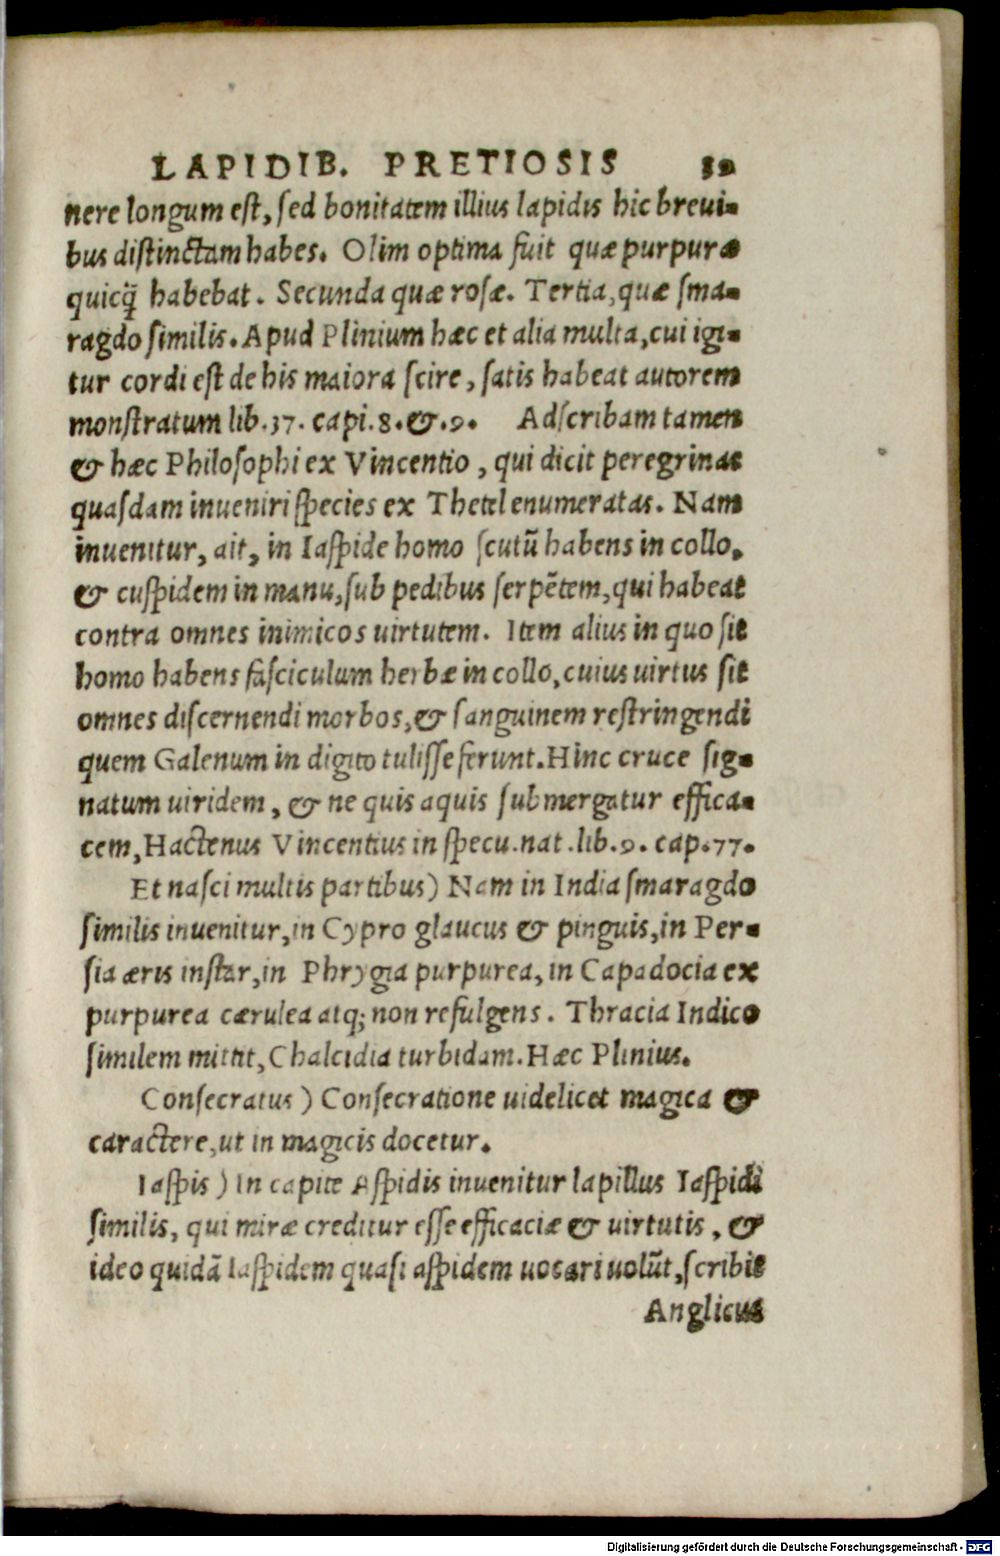 LAPIDIB. PRETIOSIS
nere longum est, sed bonitatem illius lapidis hic breui-
bus distinctam habes. Olim optima fuit quæ purpuræ
quicq̃ habebat. Secunda quæ rosæ. Tertia, quæ sma-
ragdo similis. Apud Plinium hæc et alia multa, cui igi-
tur cordi est de his maiora scire, satis habeat autorem
monstratum lib. 37. capi. 8. & .9. Adscribam tamen
& hæc Philosophi ex Vincentio, qui dicit peregrinas
quasdam inueniri species ex Thetel enumeratas. Nam
inuenitur, ait, in Iaspide homo scutũ habens in collo,
& cuspidem in manu, sub pedibus serpẽtem, qui habeat
contra omnes inimicos uirtutem. Item alius in quo sit
homo habens fasciculum herbæ in collo, cuius uirtus sit
omnes discernendi morbos, & sanguinem restringendi
quem Galenum in digito tulisse ferunt. Hinc cruce sig-
natum uiridem, & ne quis aquis submergatur effica-
cem, Hactenus Vincentius in specu. nat. lib. 9. cap. 77.
Et nasci multis partibus) Nam in India smaragdo
similis inuenitur, in Cypro glaucus & pinguis, in Per-
sia æris instar, in Phrygia purpurea, in Capadocia ex
purpurea cærulea atq; non refulgens. Thracia Indico
similem mittit, Chalcidia turbidam. Hæc Plinius.
Consecratus) Consecratione uidelicet magica &
caractere, ut in magicis docetur.
Iaspis) In capite Aspidis inuenitur lapillus Iaspidi
similis, qui miræ creditur esse efficaciæ & uirtutis, &
ideo quidã Iaspidem quasi aspidem uocari uolũt, scribit
Anglicus
Digitalisierung gefördert durch die Deutsche Forschungsgemeinschaft - DFG